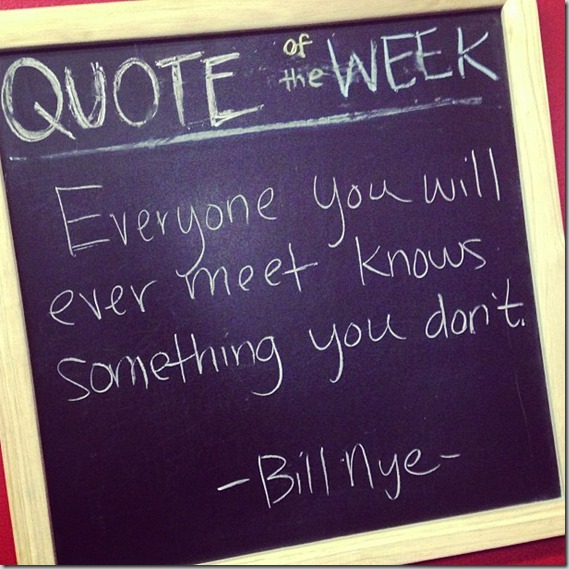 QUOTE of the WEEK
Everyone you will
ever meet knows
something you don't.
-Bill Nye-